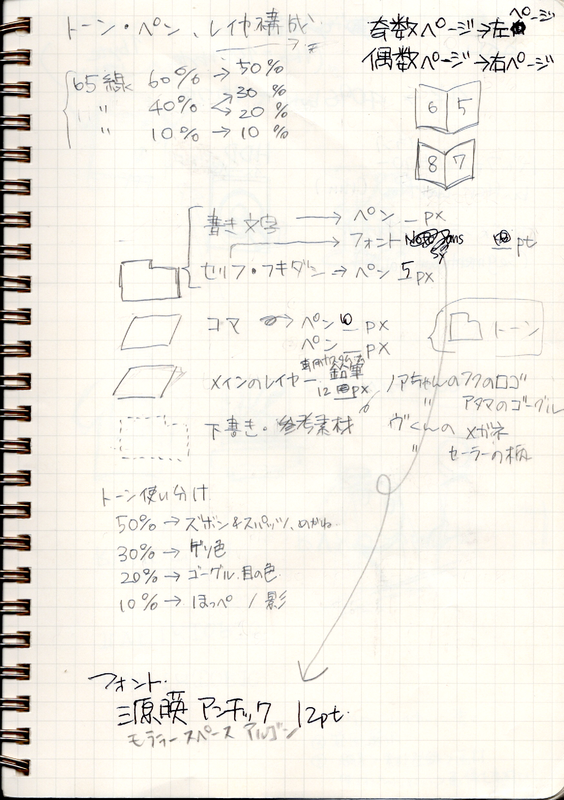 トーン・ペン、レイヤ構成
奇数ページ→左ページ
偶数ページ→右ページ
65線 60% → 50%
〃 40% → 30%
20%
〃 10% → 10%
6 5
8 7
書き文字 → ペン _px
フォント pt
セリフ・フキダシ → ペン 5px
コマ → ペン px
ペン _px
トーン
メインのレイヤー 鉛筆
12 px
ノアちゃんのフクのロゴ
〃 アタマのゴーグル
下書き・参考素材
ヴくんの メガネ
〃 セーラーの柄
トーン使い分け
50% → ズボン&スパッツ、めがね
30% → ゲソ色
20% → ゴーグル、目の色
10% → ほっぺ / 影
フォント
アンチック 12pt
モララースペース アルゴン